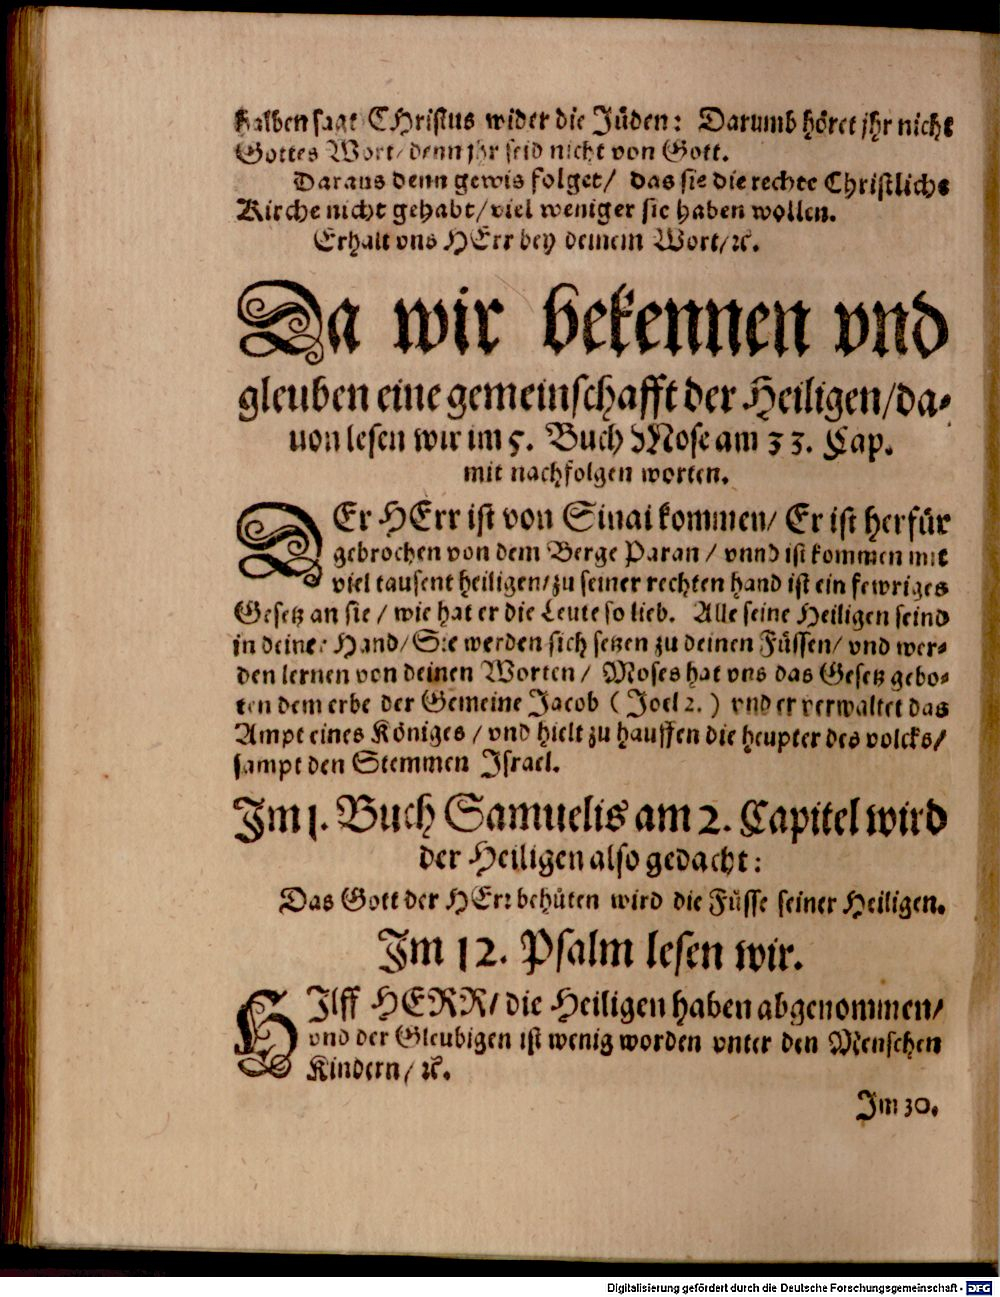 halben sagt CHristus wider die Jüden: Darumb höret jhr nicht
Gottes Wort/ denn jhr seid nicht von Gott.
Daraus denn gewis folget/ das sie die rechte Christliche
Kirche nicht gehabt/ viel weniger sie haben wollen.
Erhalt vns HErr bey deinem Wort/ ꝛc.
Da wir bekennen vnd
gleuben eine gemeinschafft der Heiligen/ da⸗
uon lesen wir im 5. Buch Mose am 33. Cap.
mit nachfolgen worten.
DEr HErr ist von Sinai kommen/ Er ist herfür
gebrochen von dem Berge Paran / vnnd ist kommen mit
viel tausent heiligen/ zu seiner rechten hand ist ein fewriges
Gesetz an sie / wie hat er die Leute so lieb. Alle seine Heiligen seind
in deiner Hand/ Sie werden sich setzen zu deinen Füssen/ vnd wer⸗
den lernen von deinen Worten / Moses hat vns das Gesetz gebo⸗
ten dem erbe der Gemeine Jacob ( Joel 2. ) vnd er verwaltet das
Ampt eines Königes / vnd hielt zu hauffen die heupter des volcks/
sampt den Stemmen Israel.
Im 1. Buch Samuelis am 2. Capitel wird
der Heiligen also gedacht:
Das Gott der HErr behüten wird die Füsse seiner Heiligen.
Im 12. Psalm lesen wir.
HIlff HERR/ die Heiligen haben abgenommen/
vnd der Gleubigen ist wenig worden vnter den Menschen
Kindern/ ꝛc.
Im 30.
Digitalisierung gefördert durch die Deutsche Forschungsgemeinschaft - DFG